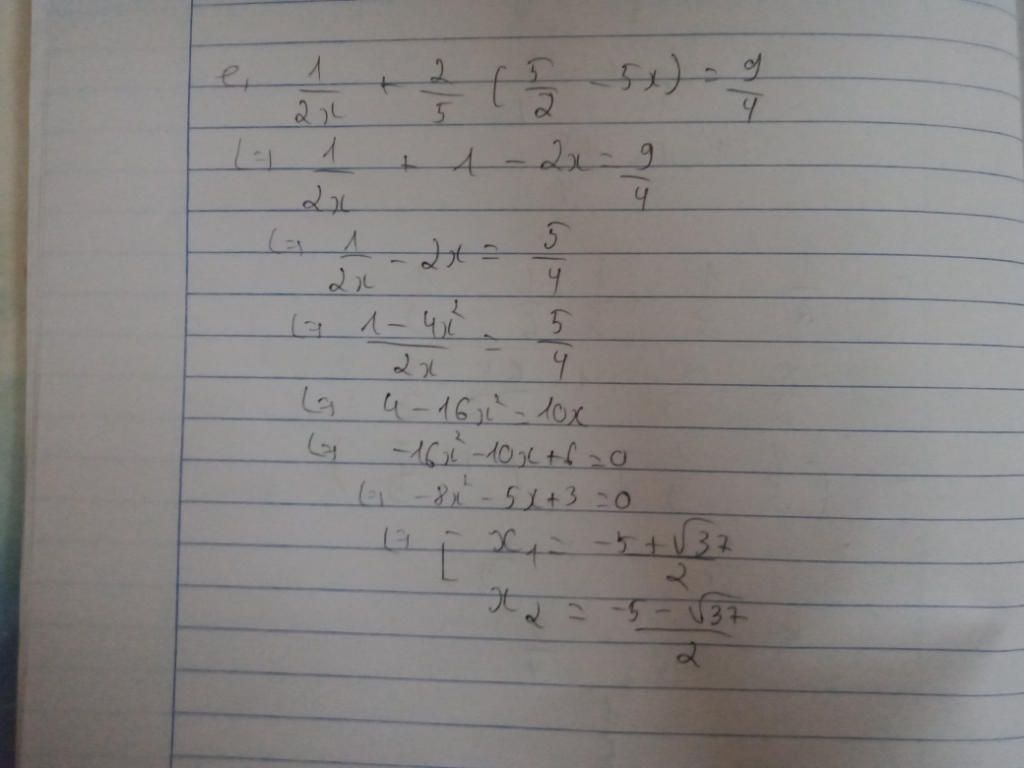 e, 1/2x + 2/5 (5/2 - 5x) = 9/4
(=) 1/2x + 1 - 2x = 9/4
(=) 1/2x - 2x = 5/4
(=) (1 - 4x²)/2x = 5/4
(=) 4 - 16x² = 10x
(=) -16x² - 10x + 6 = 0
(=) -8x² - 5x + 3 = 0
(=) [ x₁ = (-5 + √37)/2
x₂ = (-5 - √37)/2